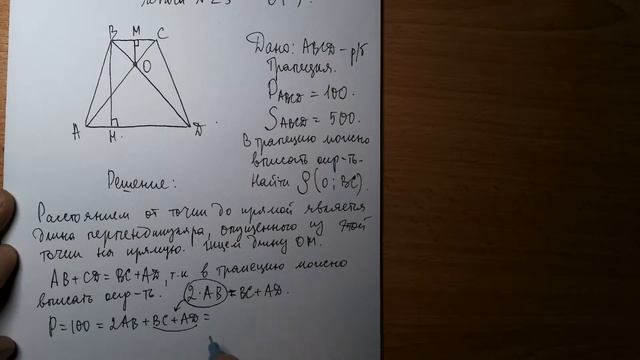 B M C
O
A H D
Дано: ABCD – р/б
трапеция.
P ABCD = 100.
S ABCD = 500.
В трапецию можно
вписать окр-ть.
Найти ρ(O; BC).
Решение:
Расстоянием от точки до прямой является
длина перпендикуляра, опущенного из этой
точки на прямую. Ищем длину OM.
AB + CD = BC + AD, т.к. в трапецию можно
вписать окр-ть. 2·AB = BC + AD.
P = 100 = 2AB + BC + AD =